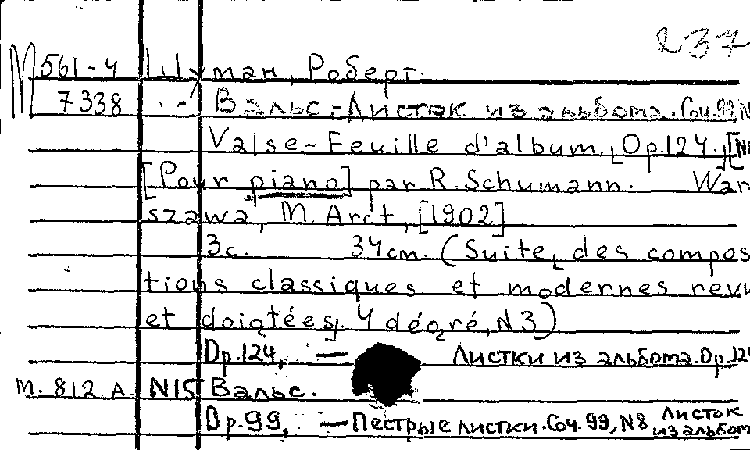 237
М 561-4 Шуман, Роберт.
7338 Вальс-Листок из альбома. Соч. 99, N
Valse-Feuille d'album, Op.124. [N
[Pour piano] par R. Schumann. War
szawa, M. Arct, [1902]
3с. 34см. (Suite des compos
tions classiques et modernes revu
et doigtées, 4 dégré, N3)
Op.124, — Листки из альбома. Op.124
М. 812 А N15 Вальс.
Op.99, — Пестрые листки. Соч. 99, N8 Листок
из альбом